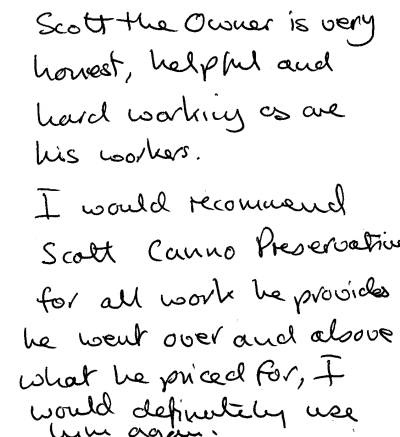 Scott the Owner is very
honest, helpful and
hard working as are
his workers.
I would recommend
Scott Canno Preservation
for all work he provides
he went over and above
what he priced for, I
would definately use
him again.